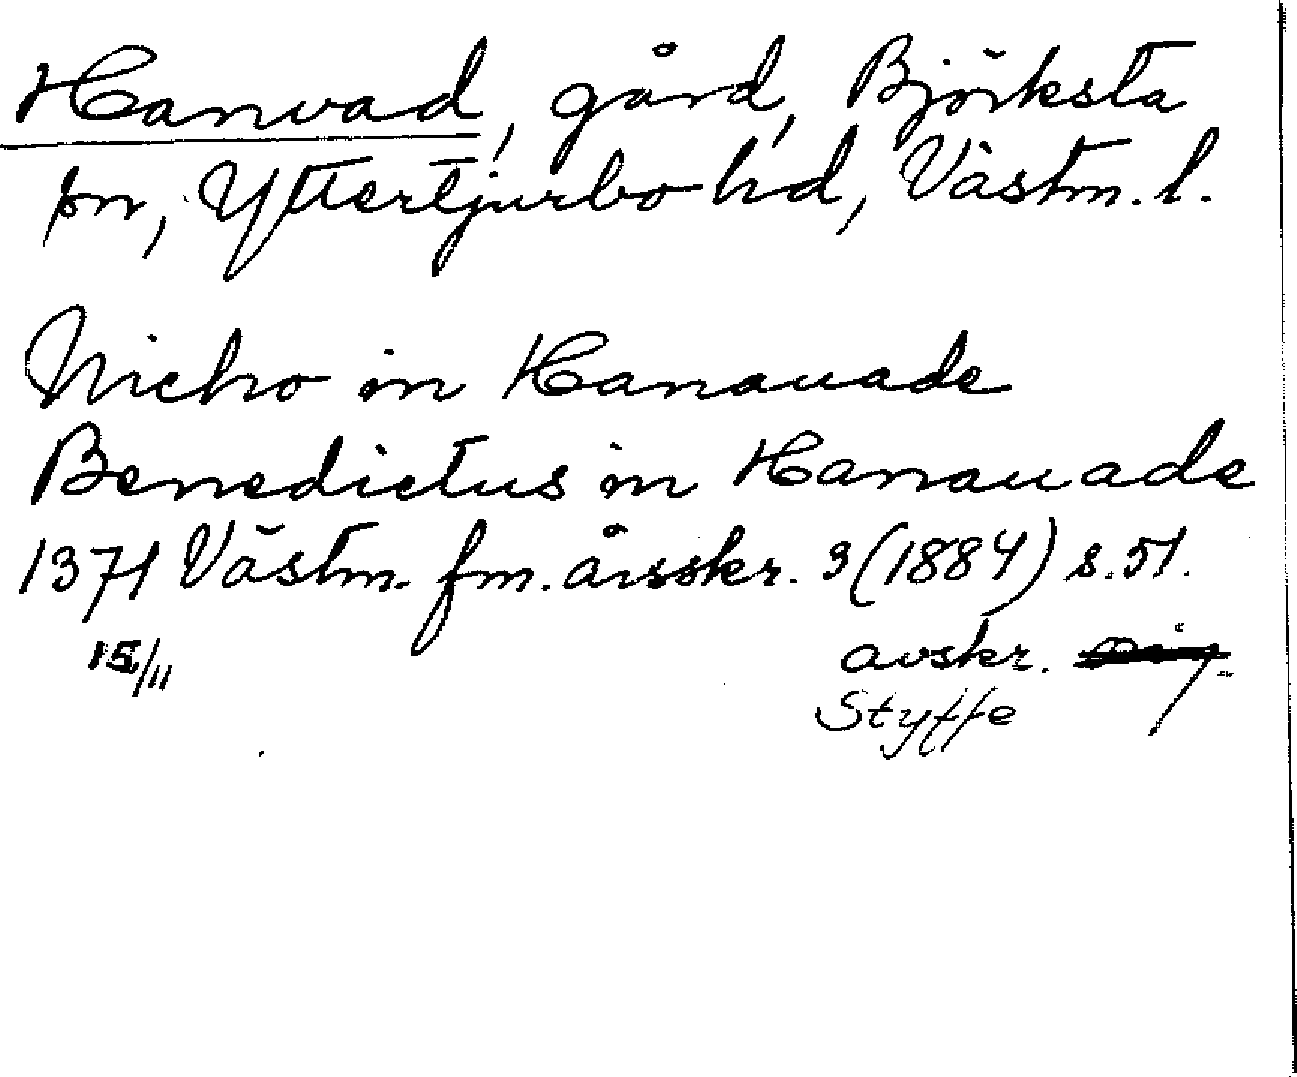 Hanvad, gård, Björksta
sn, Yttertjurbo hd, Västm. l.
Nicho in Hanauade
Benedictus in Hanauade
1371 Västm. fm. årsskr. 3 (1884) s. 51.
15/11 avskr.
Styffe